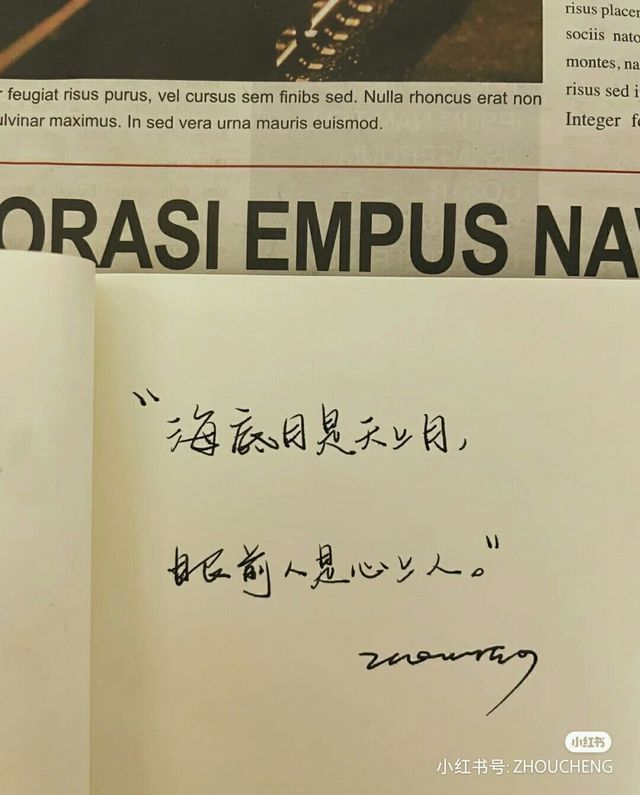 feugiat risus purus, vel cursus sem finibs sed. Nulla rhoncus erat non
ulvinar maximus. In sed vera urna mauris euismod.
risus placer
sociis nato
montes, na
risus sed i
Integer fe
ORASI EMPUS NA
“海底月是天上月，
眼前人是心上人。”
小红书
小红书号: ZHOUCHENG